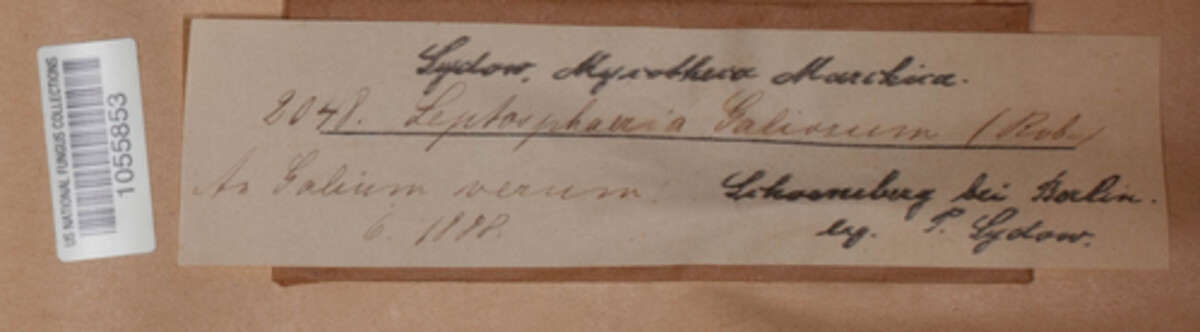 US NATIONAL FUNGUS COLLECTIONS
1055853
Sydow, Mycotheca Marchica.
2048. Leptosphaeria Galiorum (Rob.)
An Galium verum.
6. 1888.
Schoeneberg bei Berlin.
leg. P. Sydow.